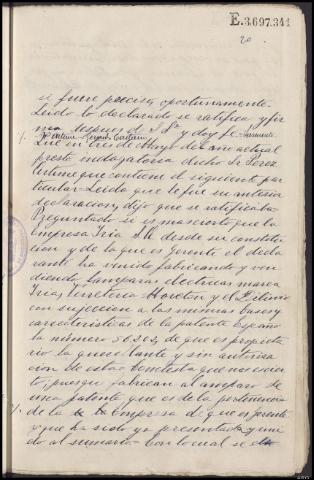 E.3.697.344
20
si fuere preciso, oportunamente.
Leido lo declarado se ratifica y fir
ma despues de S Sª y doy fe.
Que en tres de Mayo del año actual
prestó indagatoria dicho Sr Perez
que contiene el siguiente par
ticular = Leida que le fue su anterior
declaracion, dijo que se ratificaba
Preguntado si es mas cierto que la
Empresa Iria S.A. desde su constitu
cion y de la que es gerente el decla
rante ha venido fabricando y ven
diendo lamparas electricas marca
Irias, y el
con sujeccion a las mismas bases y
caracteristicas de la patente
la número 56262, de que es propieta
rio la querellante y sin autoriza
cion de esta = Contesta que no es cier
to, puesque fabrican al amparo de
una patente que es de la pertenencia
de la Empresa de que es gerente
y que ha sido ya presentada y uni
do al sumario = Con lo cual se